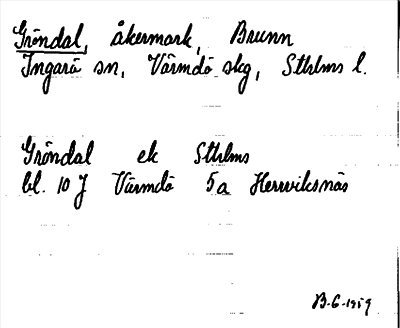 Gröndal, åkermark, Brunn
Ingarö sn, Värmdö skg, Sthlms l.
Gröndal ek Sthlms
bl. 10J Värmdö 5a Herrviksnäs
B-G-1959